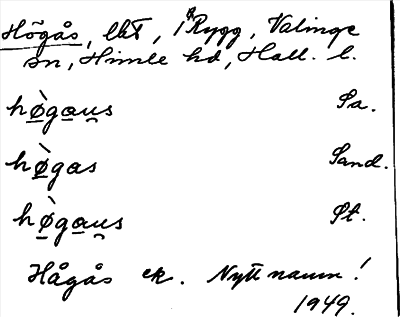 Högås, lht, i Rygg, Valinge
sn, Himle hd, Hall. l.
hø̲̀ga̲u̯s Sa.
hø̲̀gas Sand.
hø̲̀ga̲u̯s St.
Hågås ek. Nytt namn!
1949.